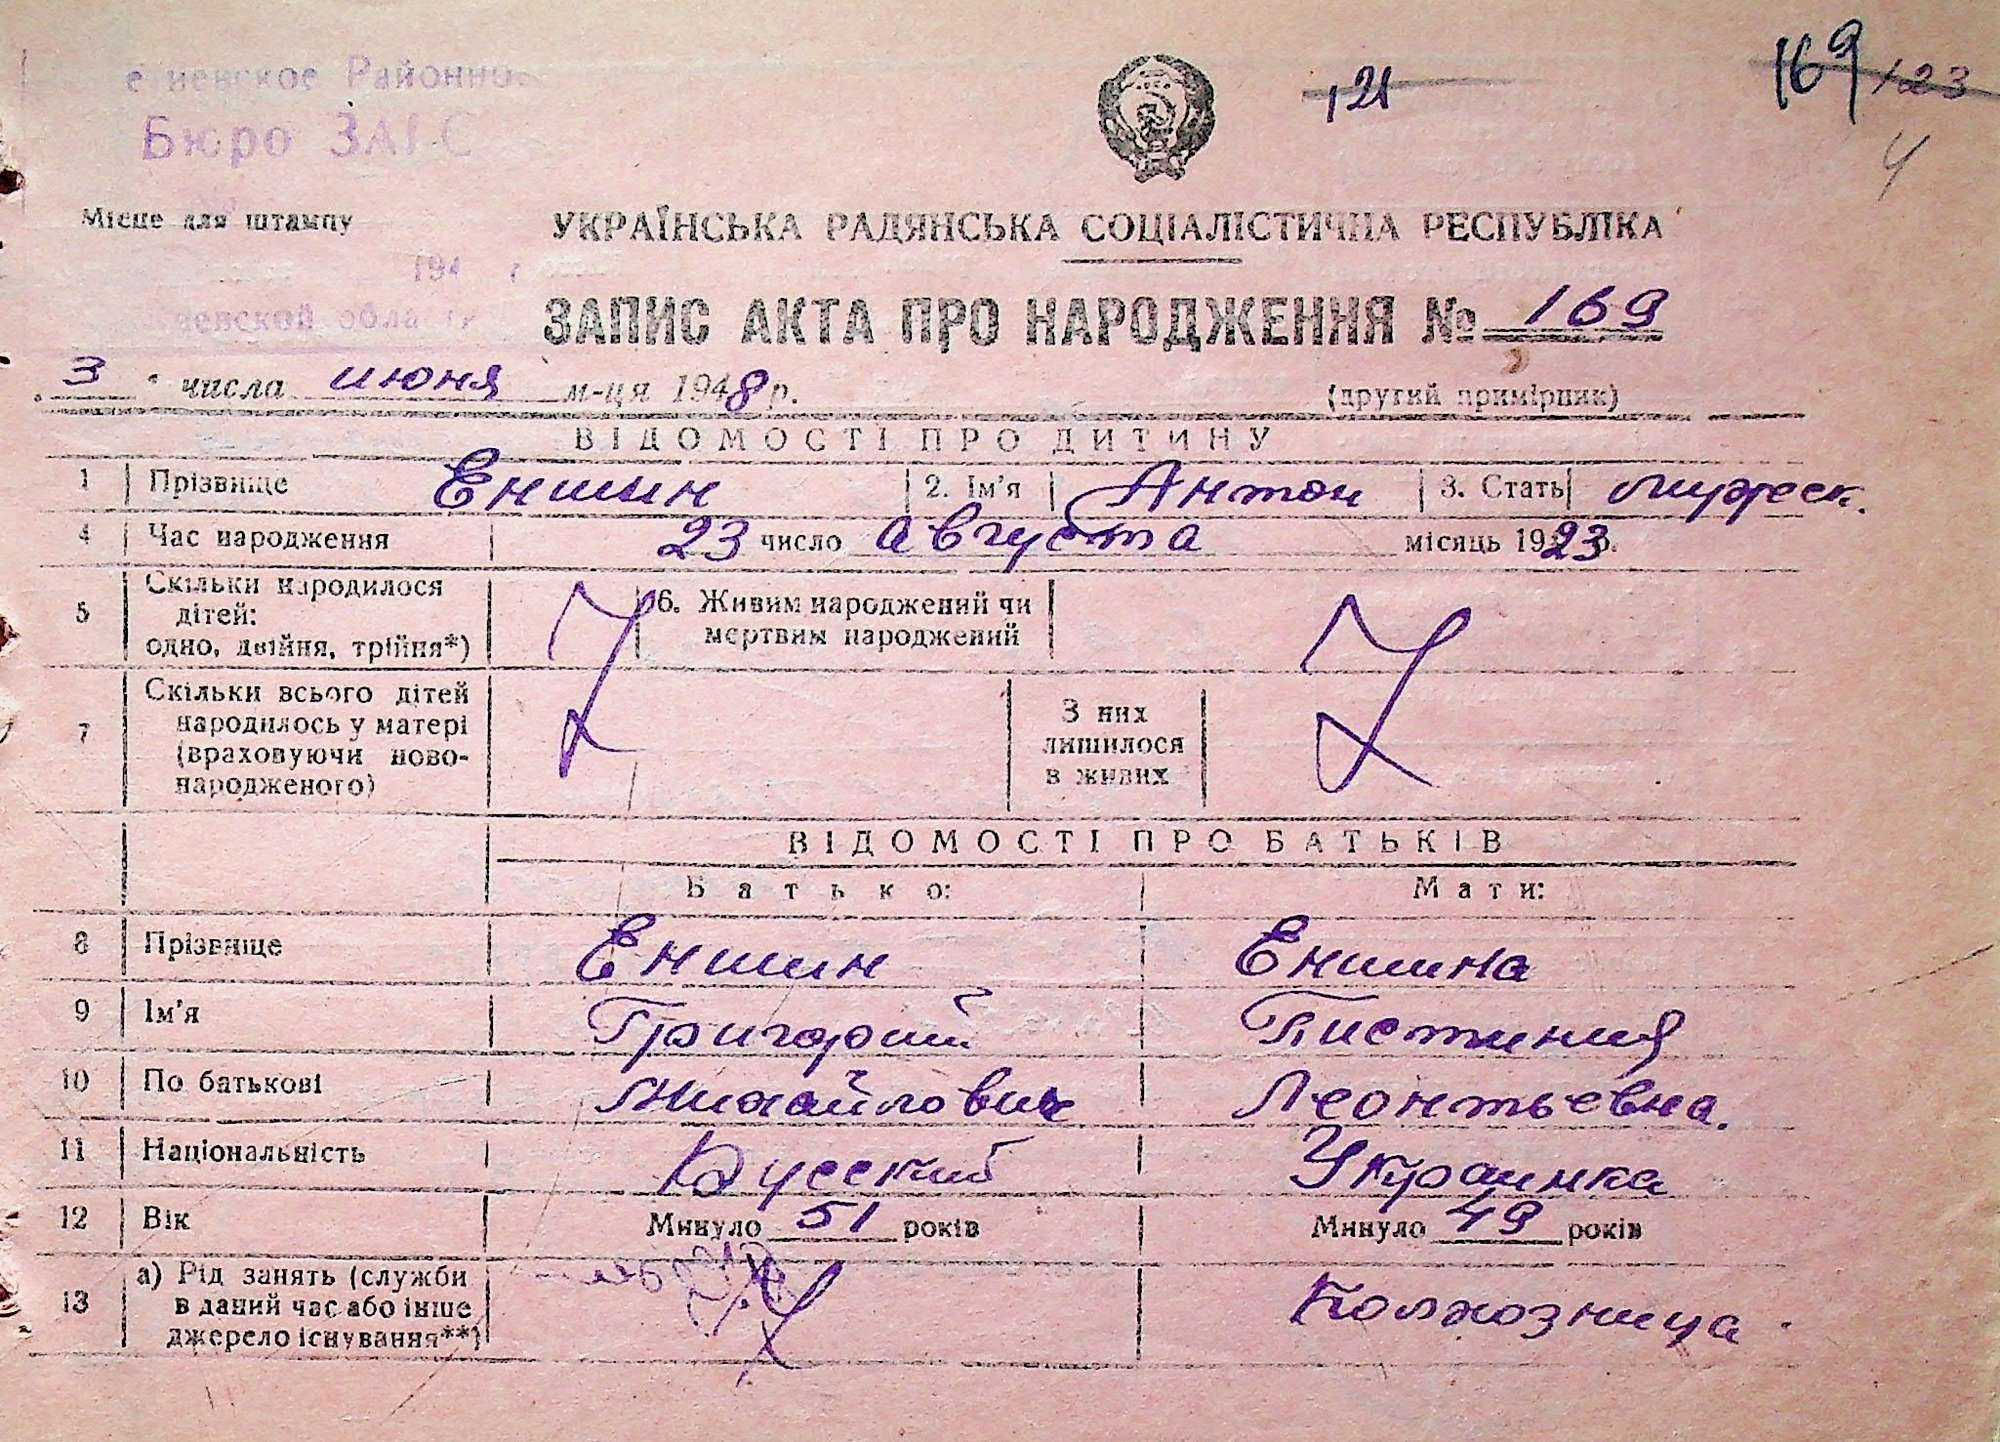 Районно
Бюро ЗАГС
121
169 123
4
Місце для штампу
УКРАЇНСЬКА РАДЯНСЬКА СОЦІАЛІСТИЧНА РЕСПУБЛІКА
194
ЗАПИС АКТА ПРО НАРОДЖЕННЯ № 169
3 числа июня м-ця 1948 р.
(другий примірник)
ВІДОМОСТІ ПРО ДИТИНУ
1 Прізвище Еншин 2. Ім'я Антон 3. Стать мужеск.
4 Час народження 23 число августа місяць 1923 р.
5 Скільки народилося
дітей:
одно, двійня, трійня*)
6. Живим народжений чи
мертвим народжений
7 Скільки всього дітей
народилось у матері
(враховуючи ново-
народженого)
З них
лишилося
в живих
ВІДОМОСТІ ПРО БАТЬКІВ
Батько: Мати:
8 Прізвище Еншин Еншина
9 Ім'я Григорий Пистиния
10 По батькові Михайлович Леонтьевна.
11 Національність Русский Украинка
12 Вік Минуло 51 років Минуло 49 років
13 а) Рід занять (служби
в даний час або інше
джерело існування**)
Колхозница